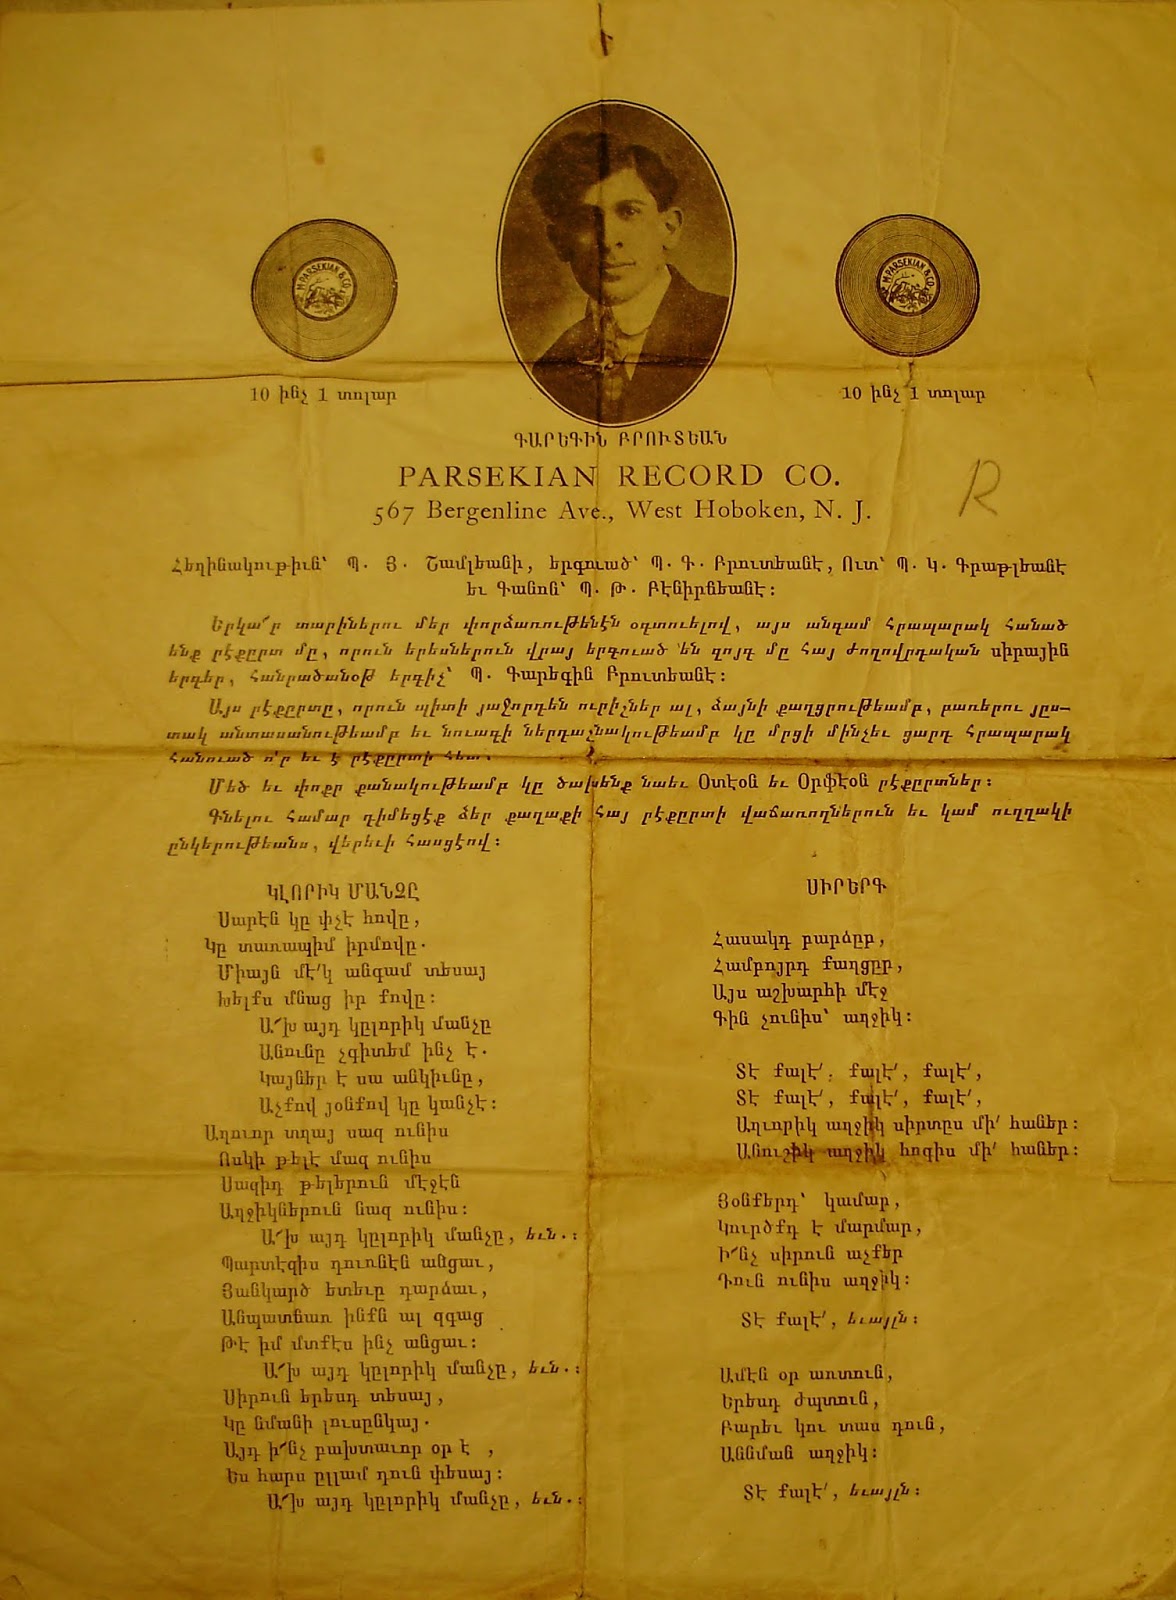 M. PARSEKIAN & CO.
M. PARSEKIAN & CO.
10 ինչ 1 տոլար
10 ինչ 1 տոլար
ԳԱՐԵԳԻՆ ԲՐՈՒՏԵԱՆ
PARSEKIAN RECORD CO.
R
567 Bergenline Ave., West Hoboken, N. J.
Հեղինակութիւն՝ Պ. Յ. Շամլեանի, երգուած՝ Պ. Գ. Բրուտեանէ, Ուտ՝ Պ. Կ. Գրաթլեանէ
եւ Գանոն՝ Պ. Թ. Բէնիրնեանէ։
Երկա՜ր տարիներու մեր փորձառութենէն օգտուելով, այս անգամ հրապարակ հանած
ենք րէքըրտ մը, որուն երեսներուն վրայ երգուած են զոյգ մը հայ ժողովրդական սիրային
երգեր, հանրածանօթ երգիչ՝ Պ. Գարեգին Բրուտեանէ։
Այս րէքըրտը, որուն պիտի յաջորդեն ուրիչներ ալ, ձայնի քաղցրութեամբ, բառերու յըս–
տակ անտասանութեամբ եւ նուագի ներդաշնակութեամբ կը մրցի մինչեւ ցարդ հրապարակ
հանուած ո՛ր եւ է րէքըրտի հետ.
Մեծ եւ փոքր քանակութեամբ կը ծախենք նաեւ Օտէօն եւ Օրֆէօն րէքըրտներ։
Գնելու համար դիմեցէք ձեր քաղաքի հայ րէքըրտի վաճառողներուն եւ կամ ուղղակի
ընկերութեանս, վերեւի հասցէով։
ԿԼՈՐԻԿ ՄԱՆՉԸ
Սարէն կը փչէ հովը,
Կը տառապիմ իրմովը.
Միայն մէ՛կ անգամ տեսայ
Խելքս մնաց իր քովը։
Ա՜խ այդ կըլորիկ մանչը
Անունը չգիտեմ ինչ է.
Կայներ է սա անկիւնը,
Աչքով յօնքով կը կանչէ։
Աղուոր տղայ սազ ունիս
Ոսկի թելէ մազ ունիս
Սազիդ թելերուն մէջէն
Աղջիկներուն նազ ունիս։
Ա՜խ այդ կըլորիկ մանչը, եւն.։
Պարտէզիս դուռնէն անցաւ,
Յանկարծ ետեւը դարձաւ,
Անպատճառ ինքն ալ զգաց
Թէ իմ մտքէս ինչ անցաւ։
Ա՜խ այդ կըլորիկ մանչը, եւն.։
Սիրուն երեսդ տեսայ,
Կը նմանի լուսընկայ.
Այդ ի՜նչ բախտաւոր օր է ,
Ես հարս ըլլամ դուն փեսայ։
Ա՜խ այդ կըլորիկ մանչը, եւն.։
ՍԻՐԵՐԳ
Հասակդ բարձըր,
Համբոյրդ քաղցըր,
Այս աշխարհի մէջ
Գին չունիս՝ աղջիկ։
Տէ քալէ՛, քալէ՛, քալէ՛,
Տէ քալէ՛, քալէ՛, քալէ՛,
Աղւորիկ աղջիկ սիրտըս մի՛ հաներ։
Անուշիկ աղջիկ հոգիս մի՛ հաներ։
Յօնքերդ՝ կամար,
Կուրծքդ է մարմար,
Ի՜նչ սիրուն աչքեր
Դուն ունիս աղջիկ։
Տէ քալէ՛, եւայլն։
Ամէն օր առտուն,
Երեսդ ժպտուն,
Բարեւ կու տաս դուն,
Աննման աղջիկ։
Տէ քալէ՛, եւայլն։